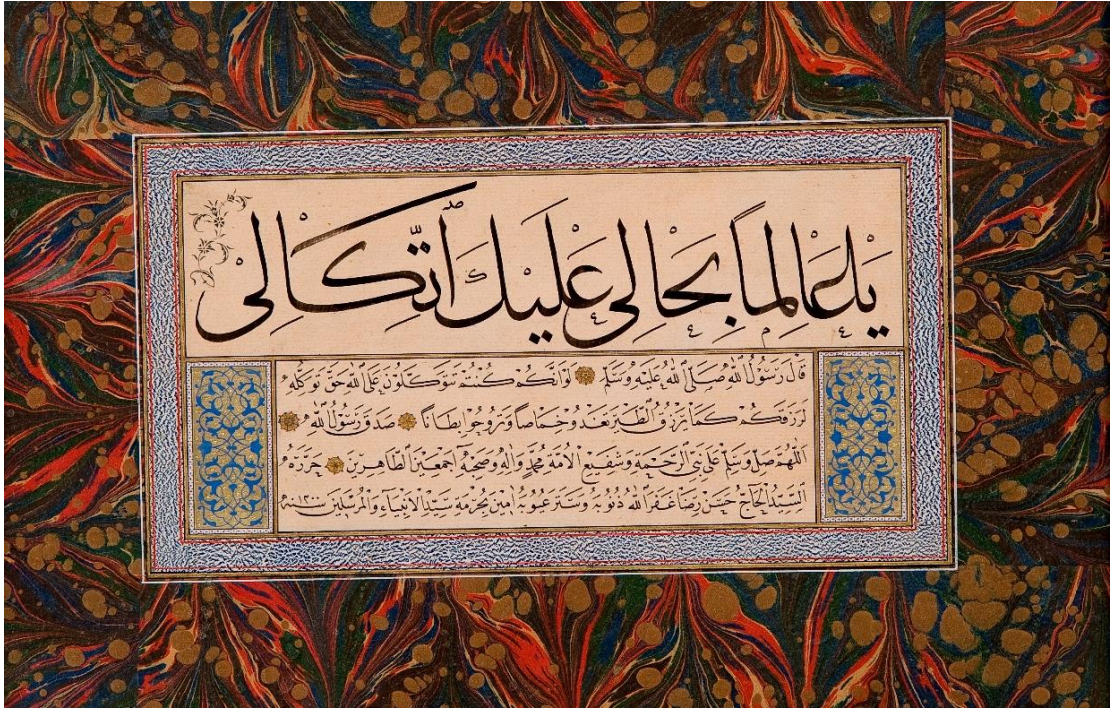 يَا عَالِمًا بِحَالِي عَلَيْكَ اتِّكَالِي
قَالَ رَسُولُ اللهِ صَلَّى اللهُ عَلَيْهِ وَسَلَّمَ لَوْ اَنَّكُمْ كُنْتُمْ تَوَكَّلُونَ عَلَى اللهِ حَقَّ تَوَكُّلِهِ
لَرَزَقَكُمْ كَمَا يَرْزُقُ الطَّيْرَ تَغْدُو خِمَاصًا وَتَرُوحُ بِطَانًا صَدَقَ رَسُولُ اللهِ
اَللّٰهُمَّ صَلِّ وَسَلِّمْ عَلَى نَبِيِّ الرَّحْمَةِ وَشَفِيعِ الْاُمَّةِ مُحَمَّدٍ وَاٰلِهِ وَصَحْبِهِ اَجْمَعِينَ الطَّاهِرِينَ حَرَّرَهُ
السَّيِّدُ الْحَاجُّ حَسَنْ رِضَا غَفَرَ اللهُ ذُنُوبَهُ وَسَتَرَ عُيُوبَهُ اٰمِينَ بِحُرْمَةِ سَيِّدِ الْاَنْبِيَاءِ وَالْمُرْسَلِينَ سنة ١٣٠٠